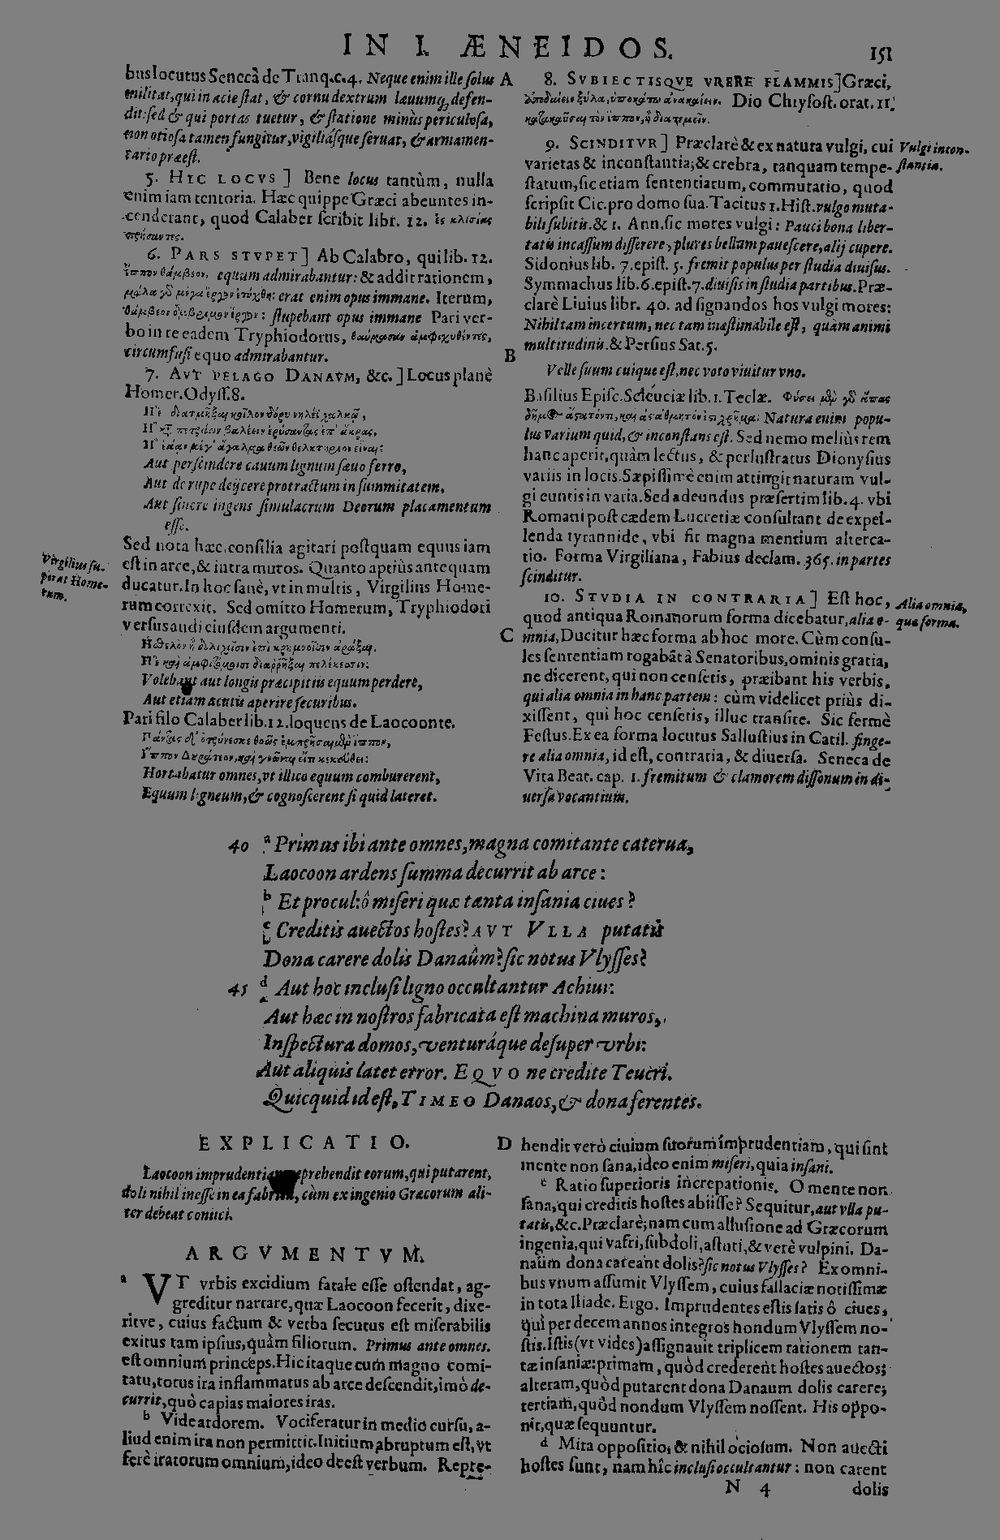 IN I. ÆNEIDOS.
151
bus locutus Senecâ de Tranq. c. 4. Neque enim ille solus
militat, qui in acie stat, & cornu dextrum lauumq; defen-
dit: sed & qui portas tuetur, & statione minùs periculosa,
non otiosa tamen fungitur, vigiliásque seruat, & armamen-
tario præest.
5. HIC LOCVS] Bene locus tantùm, nulla
enim iam tentoria. Hæc quippe Græci abeuntes in-
cenderant, quod Calaber scribit libr. 12.
6. PARS STVPET] Ab Calabro, qui lib. 12.
equum admirabantur: & addit rationem,
erat enim opus immane. Iterum,
stupebant opus immane Pari ver-
bo in re eadem Tryphiodorus,
circumfusi equo admirabantur.
7. AVT PELAGO DANAVM, &c.] Locus planè
Homer. Odyss. 8.
Aut perscindere cauum lignum sæuo ferro,
Aut de rupe deijcere protractum in summitatem,
Aut sinere ingens simulacrum Deorum placamentum
esse.
Sed nota hæc, consilia agitari postquam equus iam
est in arce, & intra muros. Quanto aptiùs antequam
ducatur. In hoc sanè, vt in multis, Virgilius Home-
rum correxit. Sed omitto Homerum, Tryphiodori
versus audi eiusdem argumenti.
Volebant aut longis præcipitiis equum perdere,
Aut etiam acutis aperire securibus.
Pari filo Calaber lib. 12. loquens de Laocoonte.
Hortabatur omnes, vt illico equum comburerent,
Equum ligneum, & cognoscerent si quid lateret.
Virgilius su-
perat Home-
rum.
A
8. SVBIECTISQVE VRERE FLAMMIS] Græci,
Dio Chrysost. orat. 11.
9. SCINDITVR] Præclarè & ex natura vulgi, cui
varietas & inconstantia; & crebra, tanquam tempe-
statum, sic etiam sententiarum, commutatio, quod
scripsit Cic. pro domo sua. Tacitus 1. Hist. vulgo muta-
bili subitis. & 1. Ann. sic mores vulgi: Pauci bona liber-
tatis incassum disserere, plures bellum pauescere, alij cupere.
Sidonius lib. 7. epist. 5. fremit populus per studia diuisus.
Symmachus lib. 6. epist. 7. diuisis in studia partibus. Præ-
clarè Liuius libr. 40. ad signandos hos vulgi mores:
Nihil tam incertum, nec tam inæstimabile est, quàm animi
multitudinis. & Persius Sat. 5.
B
Velle suum cuique est, nec voto viuitur vno.
Basilius Episc. Seleuciæ lib. 1. Teclæ.
Natura enim popu-
lus varium quid, & inconstans est. Sed nemo meliùs rem
hanc aperit, quàm lectus, & perlustratus Dionysius
variis in locis. Sæpissimè enim attingit naturam vul-
gi euntis in varia. Sed adeundus præsertim lib. 4. vbi
Romani post cædem Lucretiæ consultant de expel-
lenda tyrannide, vbi fit magna mentium alterca-
tio. Forma Virgiliana, Fabius declam. 365. in partes
scinditur.
10. STVDIA IN CONTRARIA] Est hoc,
quod antiqua Romanorum forma dicebatur, alia o-
C
mnia, Ducitur hæc forma ab hoc more. Cùm consu-
les sententiam rogabāt à Senatoribus, ominis gratia,
ne dicerent, qui non censetis, præibant his verbis,
qui alia omnia in hanc partem: cùm videlicet priùs di-
xissent, qui hoc censetis, illuc transite. Sic fermè
Festus. Ex ea forma locutus Sallustius in Catil. finge-
re alia omnia, id est, contraria, & diuersa. Seneca de
Vita Beat. cap. 1. fremitum & clamorem dissonum in di-
uersa vocantium.
Vulgi incon-
stantia.
Alia omnia,
quæ forma.
40 a Primus ibi ante omnes, magna comitante caterua,
Laocoon ardens summa decurrit ab arce:
b Et procul: ô miseri quæ tanta insania ciues?
c Creditis auectos hostes? AVT VLLA putatis
Dona carere dolis Danaûm? sic notus Vlysses?
45 d Aut hoc inclusi ligno occultantur Achiui:
Aut hæc in nostros fabricata est machina muros,
Inspectura domos, venturáque desuper vrbi:
Aut aliquis latet error. EQVO ne credite Teucri.
Quicquid id est, TIMEO Danaos, & dona ferentes.
EXPLICATIO.
Laocoon imprudentiam reprehendit eorum, qui putarent,
doli nihil inesse in ea fabrica, cùm ex ingenio Græcorum ali-
ter debeat coniici.
ARGVMENTVM.
a VT vrbis excidium fatale esse ostendat, ag-
greditur narrare, quæ Laocoon fecerit, dixe-
ritve, cuius factum & verba secutus est miserabilis
exitus tam ipsius, quàm filiorum. Primus ante omnes.
est omnium princeps. Hic itaque cum magno comi-
tatu, totus ira inflammatus ab arce descendit, imò de-
currit, quò capias maiores iras.
b Vide ardorem. Vociferatur in medio cursu, a-
liud enim ira non permittit. Initium abruptum est, vt
ferè iratorum omnium, ideo deest verbum. Repre-
D
hendit verò ciuium suorum imprudentiam, qui sint
mente non sana, ideo enim miseri, quia insani.
c Ratio superioris increpationis. O mente non
sana, qui creditis hostes abiisse? Sequitur, aut vlla pu-
tatis, &c. Præclarè; nam cum allusione ad Græcorum
ingenia, qui vafri, subdoli, astuti, & verè vulpini. Da-
naûm dona careant dolis? sic notus Vlysses? Ex omni-
bus vnum assumit Vlyssem, cuius fallaciæ notissimæ
in tota Iliade. Ergo. Imprudentes estis satis ô ciues,
qui per decem annos integros hondum Vlyssem no-
stis. Istis (vt vides) assignauit triplicem rationem tan-
tæ insaniæ: primam, quòd crederent hostes auectos;
alteram, quòd putarent dona Danaum dolis carere;
tertiam, quòd nondum Vlyssem nossent. His oppo-
nit, quæ sequuntur.
d Mira oppositio, & nihil ociosum. Non auecti
hostes sunt, nam hîc inclusi occultantur: non carent
N 4
dolis